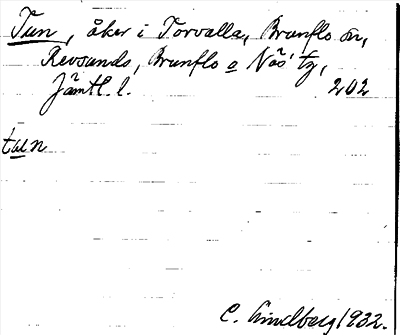 Tun, åker i Torvalla, Brunflo sn,
Revsunds, Brunflo o Näs' tg,
Jämtl. l. 202
tun
C. Lindberg 1932.